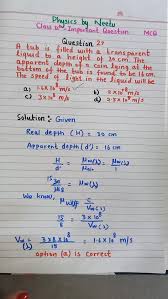 Physics by Neetu
Class 12th Important Question MCQ
Question 27
A tub is filled with a transparent
liquid to a height of 30 cm. The
apparent depth of a coin lying at the
bottom of the tub is found to be 16 cm.
The speed of light in the liquid will be
a) 1.6×10⁸ m/s b) 2×10⁸ m/s
c) 3×10⁸ m/s d) 2.5×10⁸ m/s
Solution:- Given
Real depth (H) = 30 cm
Apparent depth (d) = 16 cm
H/d = μ₂/μ₁ = Mw(λ)/1
15 30/16 8 = Mw(λ)
We know, Mw(λ) = C/Vw(λ)
15/8 = 3×10⁸/Vw(λ)
Vw(λ) = 3×8×10⁸/15 = 1.6×10⁸ m/s
option (a) is Correct